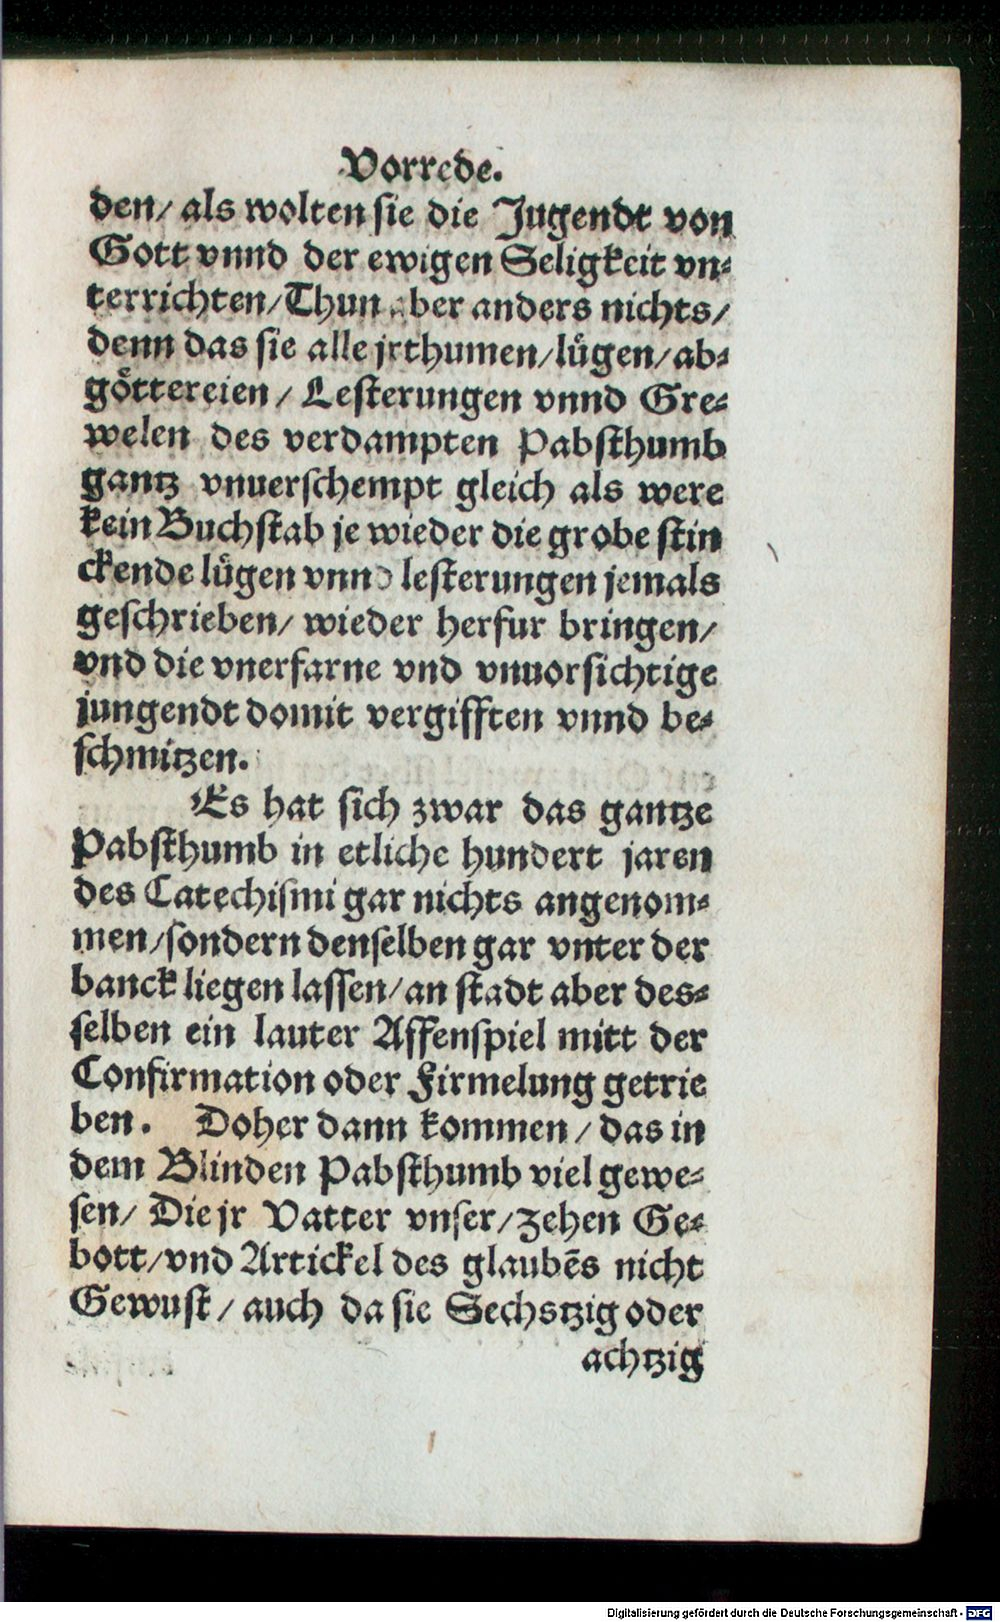 Vorrede.
den/ als wolten sie die Jugendt von
Gott vnnd der ewigen Seligkeit vn-
terrichten/Thun aber anders nichts/
denn das sie alle jrthumen/lügen/ab-
göttereien/ Lesterungen vnnd Gre-
welen des verdampten Pabsthumb
gantz vnuerschempt gleich als were
kein Buchstab je wieder die grobe stin
ckende lügen vnnd lesterungen jemals
geschrieben/ wieder herfur bringen/
vnd die vnerfarne vnd vnuorsichtige
jungendt domit vergifften vnnd be-
schmitzen.
Es hat sich zwar das gantze
Pabsthumb in etliche hundert jaren
des Catechismi gar nichts angenom-
men/sondern denselben gar vnter der
banck liegen lassen/an stadt aber des-
selben ein lauter Affenspiel mitt der
Confirmation oder Firmelung getrie
ben. Doher dann kommen/ das in
dem Blinden Pabsthumb viel gewe-
sen/ Die jr Vatter vnser/zehen Ge-
bott/vnd Artickel des glaubēs nicht
Gewust/ auch da sie Sechstzig oder
achtzig
Digitalisierung gefördert durch die Deutsche Forschungsgemeinschaft - DFG